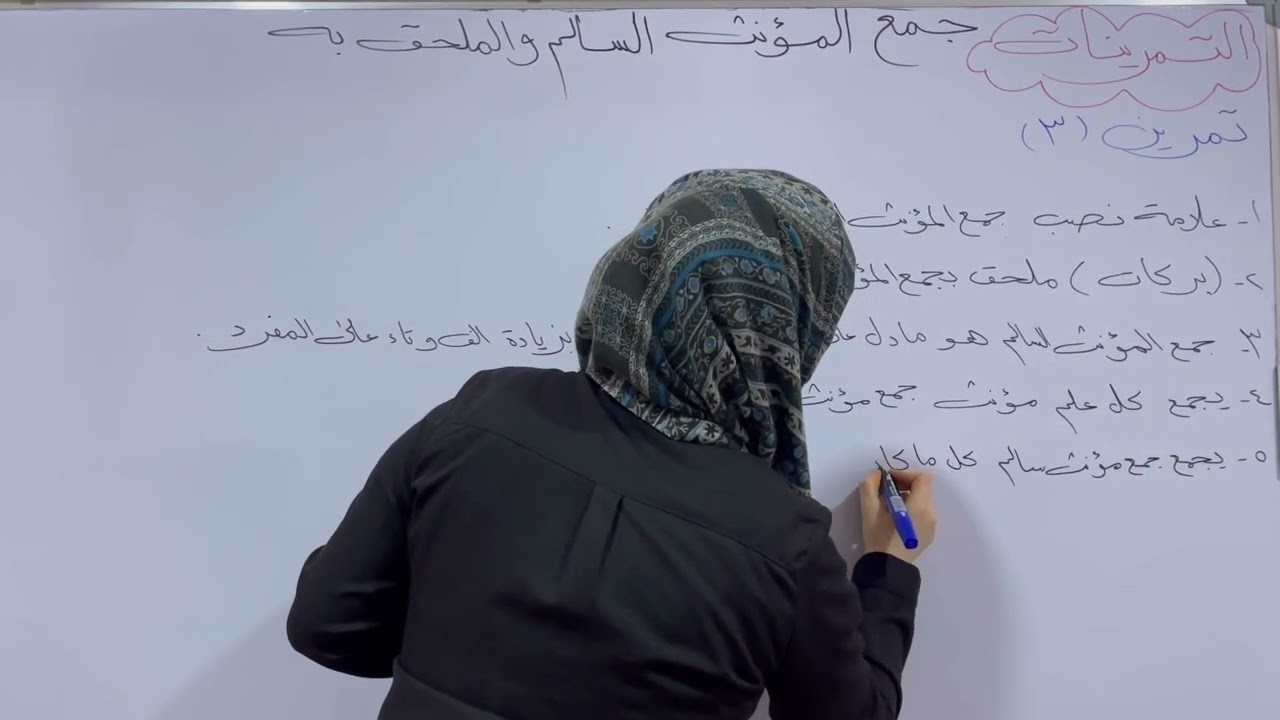 التمرينات
جمع المؤنث السالم والملحق به
تمرين (٣)
١- علامة نصب جمع المؤنث
٢- (بركات) ملحق بجمع
٣- جمع المؤنث السالم هو مادل بزيادة الف وتاء على المفرد.
٤- يجمع كل علم مؤنث جمع مؤنث
٥- يجمع جمع مؤنث سالم كل ما كا